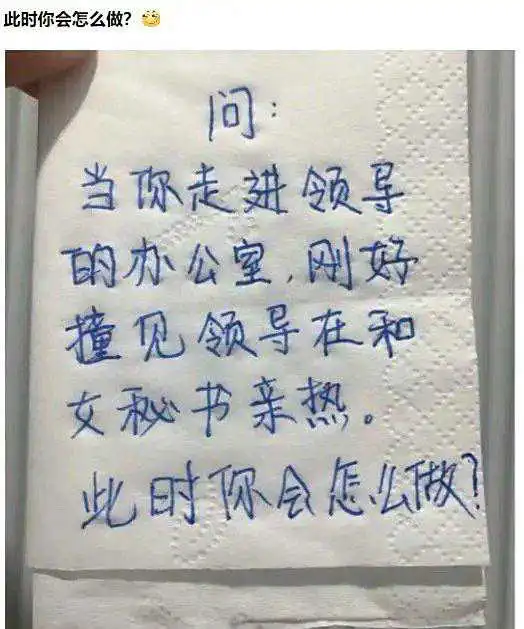 此时你会怎么做？
问：
当你走进领导
的办公室，刚好
撞见领导在和
女秘书亲热。
此时你会怎么做？